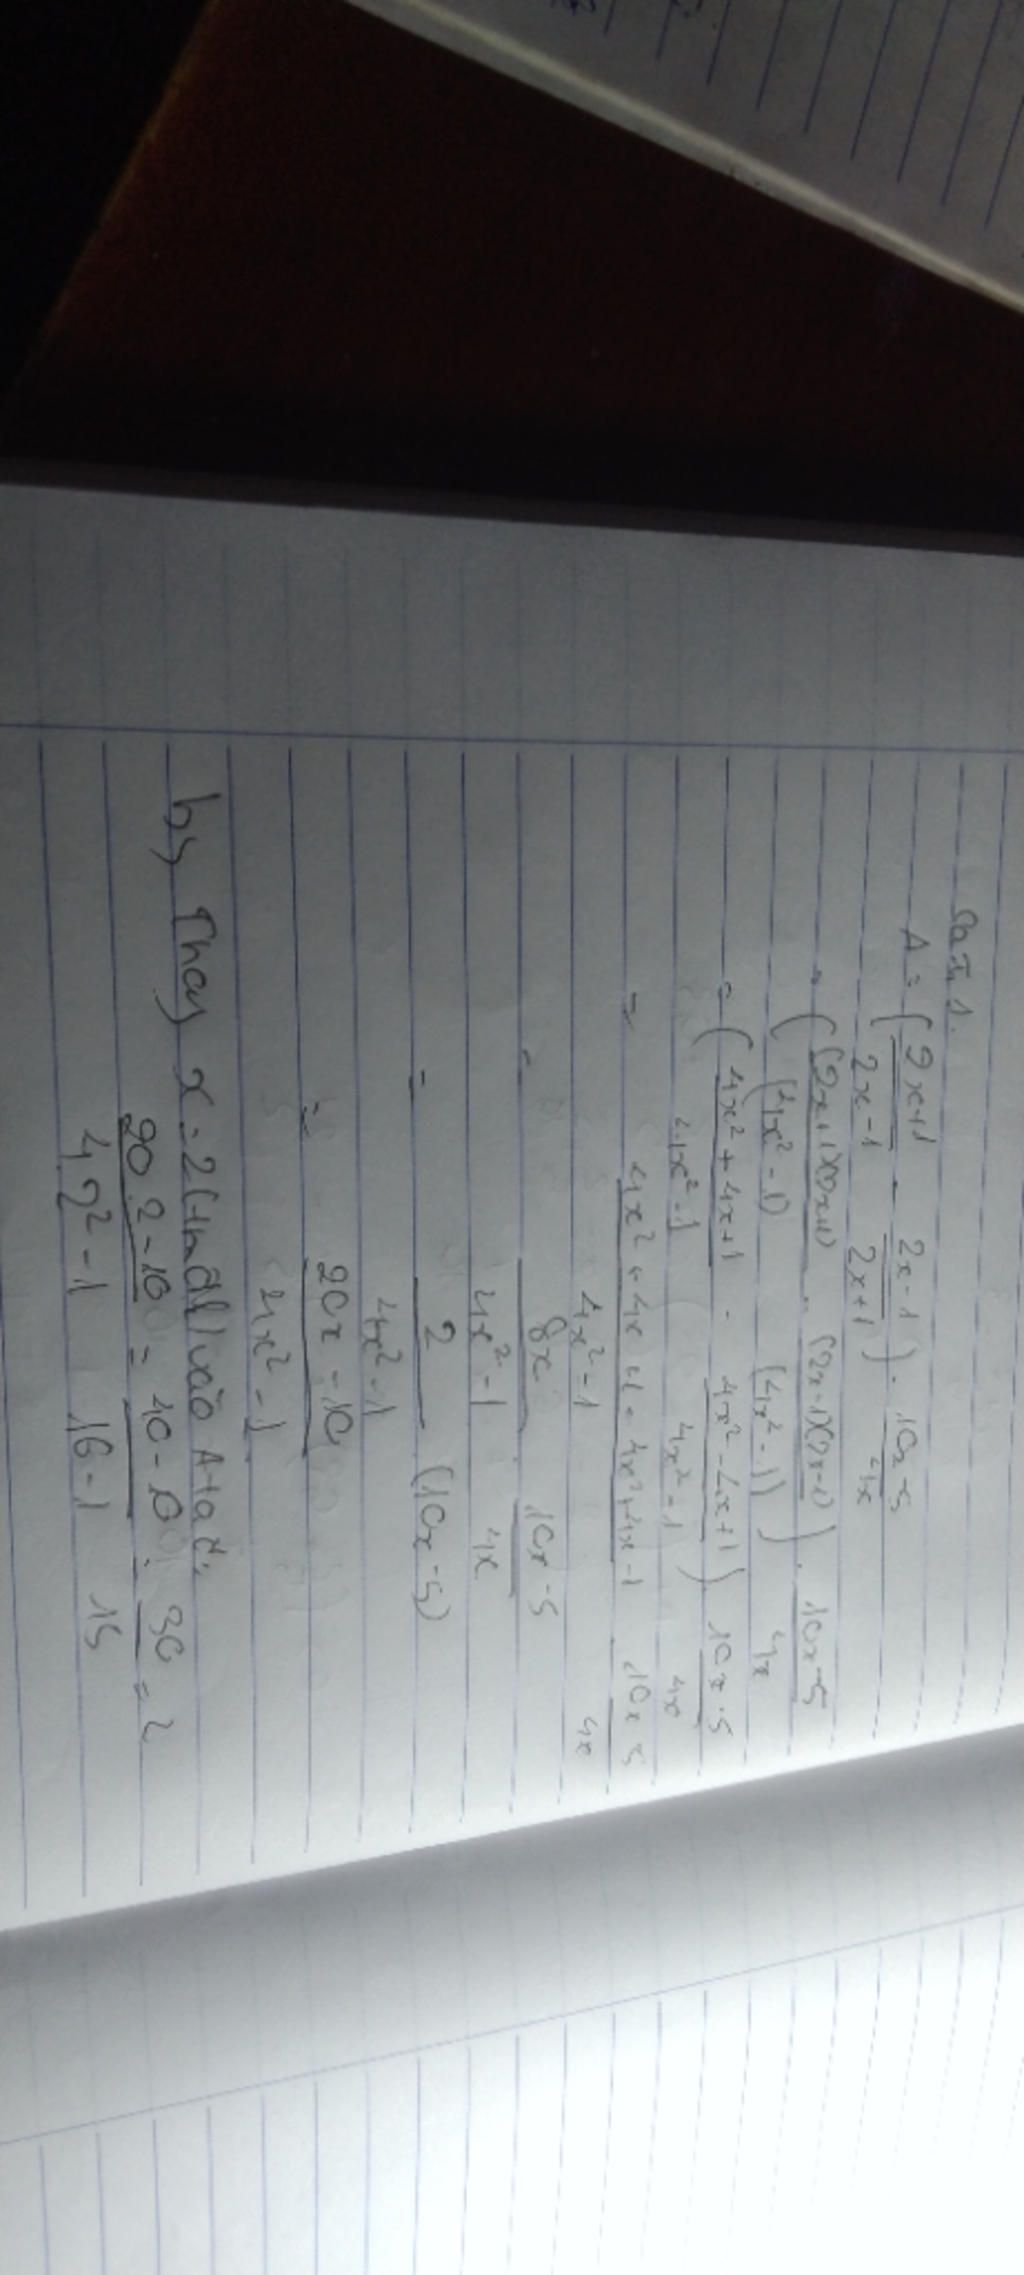 Bài 1.
A = ( 2x+1 / 2x-1 - 2x-1 / 2x+1 ) . 10x-5 / 4x
= ( (2x+1)(2x+1) / (4x²-1) - (2x-1)(2x-1) / (4x²-1) ) . 10x-5 / 4x
= ( 4x²+4x+1 / 4x²-1 - 4x²-4x+1 / 4x²-1 ) 10x-5 / 4x
= 4x²+4x+1-4x²+4x-1 / 4x²-1 10x-5 / 4x
= 8x / 4x²-1 . 10x-5 / 4x
= 2 / 4x²-1 (10x-5)
= 20x-10 / 4x²-1
b, Thay x = 2 (tmđk) vào A ta đc:
20.2-10 / 4.2²-1 = 40-10 / 16-1 = 30 / 15 = 2